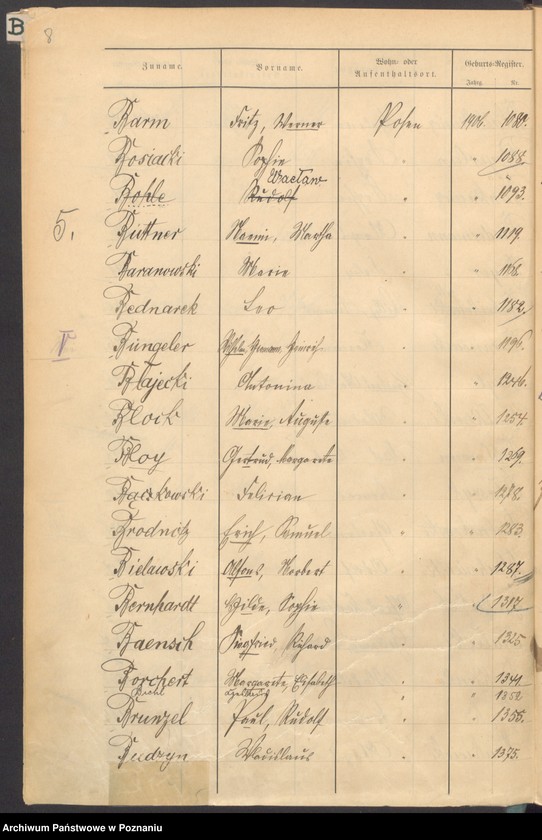 B
8
Zuname. Vorname. Wohn- oder Aufenthaltsort. Geburts-Register.
Jahrg. Nr.
Barm Fritz, Werner Posen 1906. 1080.
Bosiacki Sophie " " 1088.
Wacław
Bohle Rudolf " " 1093.
5. Büttner Naemi, Martha " " 1119.
Baranowski Marie " " 1168.
Bednarek Leo " " 1182.
V Büngeler Heinrich " " 1196.
Błajecki Antonina " " 1246.
Block Marie, Auguste " " 1254.
Bloy Gertrud, Margarete " " 1269.
Bączkowski Felician " " 1278.
Brodnitz Erich, Samuel " " 1283.
Bielawski Alfons, Norbert " " 1287.
Bernhardt Hilde, Sophie " " 1317
Baensch Siegfried, Richard " " 1325
Borchert Margarete, Elisabeth " " 1341
" 1352
Brunzel Paul, Rudolf " " 1356.
Budzyn Wladislaus " " 1375.
Archiwum Państwowe w Poznaniu